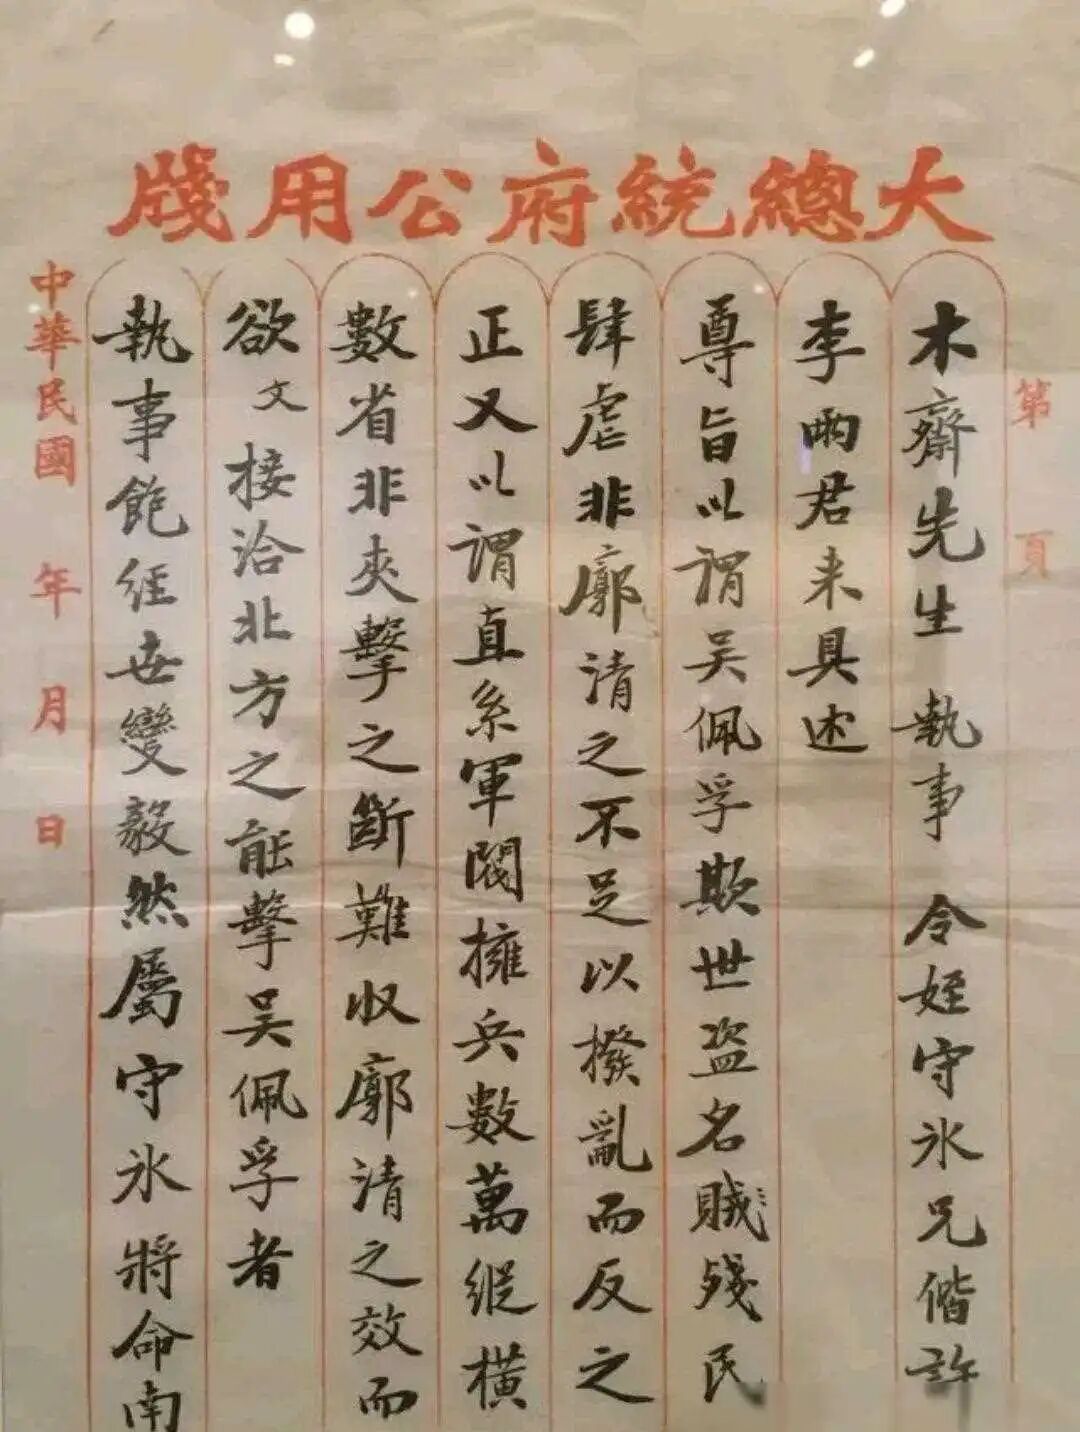 大總統府公用牋
第 頁
木齋先生 執事 令姪守冰兄偕許
李兩君来具述
尊旨以謂吴佩孚欺世盗名賊殘民
肆虐非廓清之不足以撥亂而反之
正又以謂直系軍閥擁兵數萬縱橫
數省非夾擊之斷難収廓清之效而
欲文接洽北方之能擊吴佩孚者
執事飽经世變毅然屬守氷將命南
中華民國 年 月 日